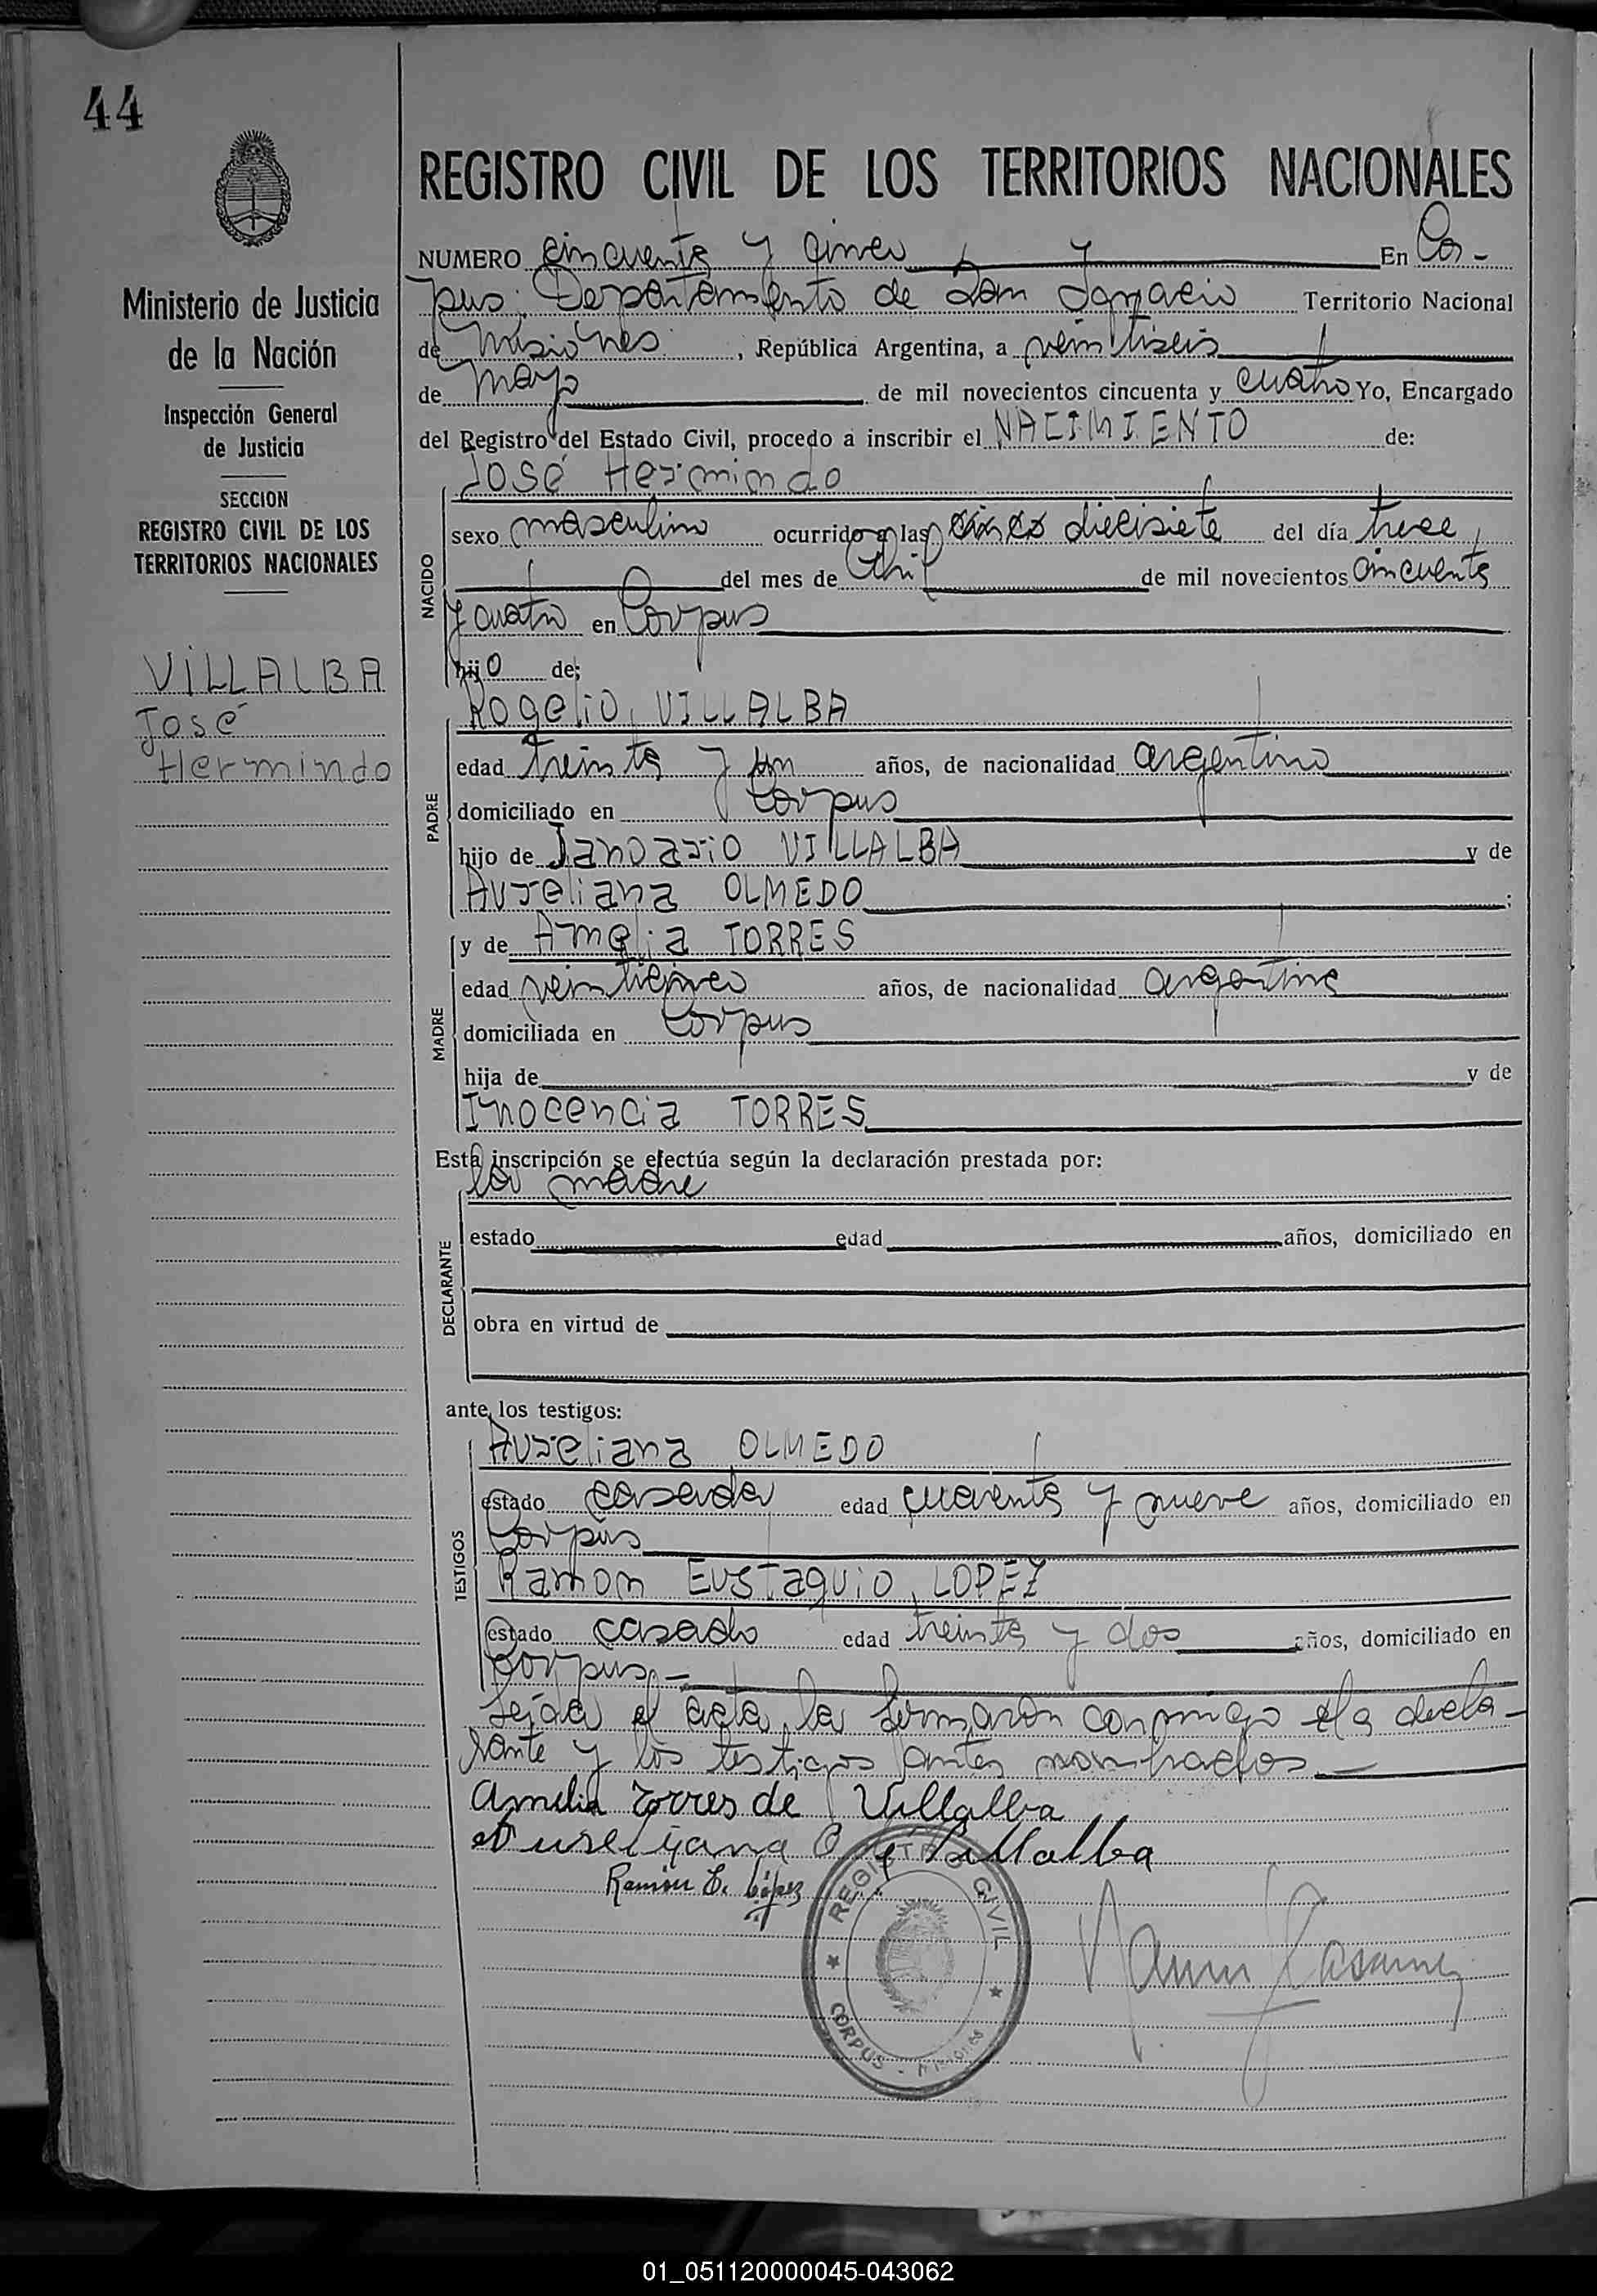 44
REGISTRO CIVIL DE LOS TERRITORIOS NACIONALES
Ministerio de Justicia
de la Nación
Inspección General
de Justicia
SECCION
REGISTRO CIVIL DE LOS
TERRITORIOS NACIONALES
VILLALBA
José
Hermindo
NUMERO cincuenta y cinco En Cor-
pus: Departamento de San Ignacio Territorio Nacional
de Misiones, República Argentina, a veintiseis
de mayo de mil novecientos cincuenta y cuatro Yo, Encargado
del Registro del Estado Civil, procedo a inscribir el NACIMIENTO de:
José Hermindo
NACIDO
sexo masculino ocurrido a las diecisiete del día trece
del mes de Abril de mil novecientos cincuenta
y cuatro en Corpus
hijo de:
Rogelio VILLALBA
PADRE
edad treinta y un años, de nacionalidad argentino
domiciliado en Corpus
hijo de Janoario VILLALBA y de
Aureliana OLMEDO ;
y de Amelia TORRES
MADRE
edad veinticinco años, de nacionalidad argentina
domiciliada en Corpus
hija de y de
Inocencia TORRES
Esta inscripción se efectúa según la declaración prestada por:
la madre
DECLARANTE
estado edad años, domiciliado en
obra en virtud de
ante los testigos:
Aureliana OLMEDO
TESTIGOS
estado casada edad cuarenta y nueve años, domiciliado en
Corpus
Ramon Eustaquio LOPEZ
estado casado edad treinta y dos años, domiciliado en
Corpus.-
Leída el acta, la firmaron conmigo la decla-
rante y los testigos antes nombrados.-
Amelia Torres de Villalba
Aureliyana O de Villalba
Ramón E. López
REGISTRO CIVIL
CORPUS - MISIONES
01_051120000045-043062